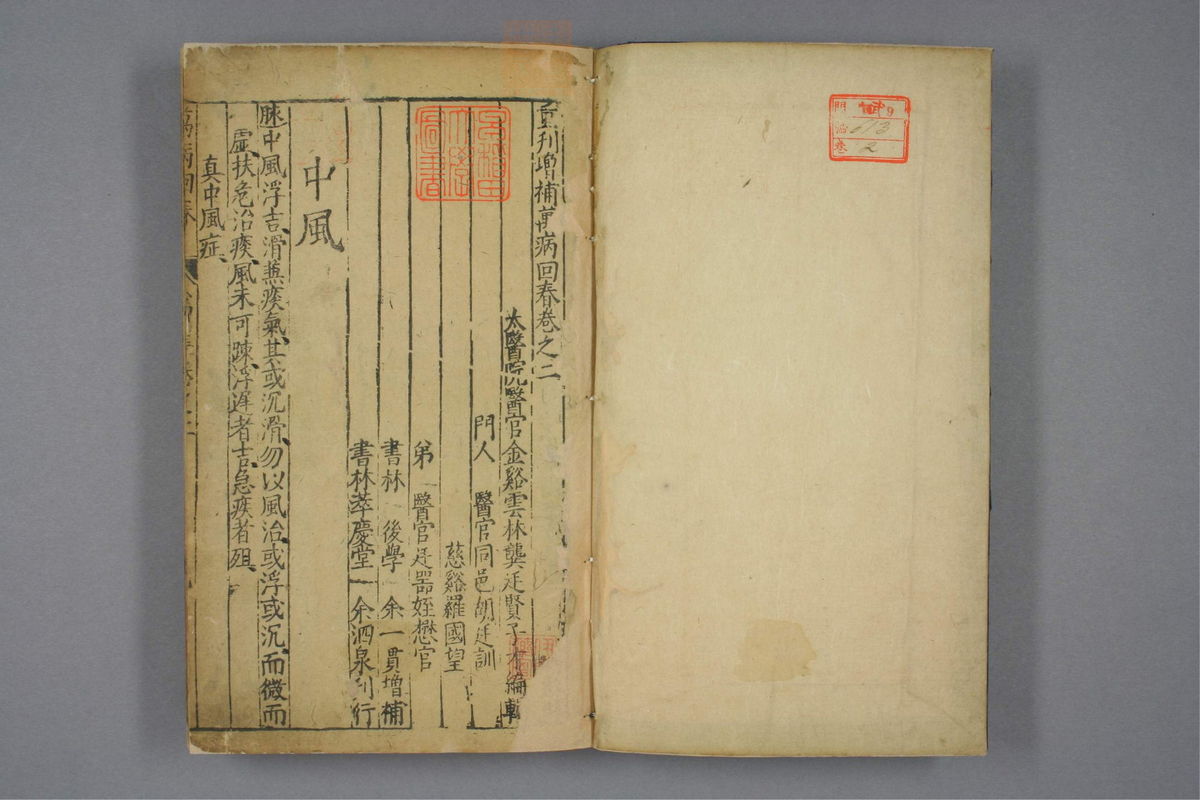 重刋增補萬病回春卷之二
太醫院醫官金谿雲林龔廷賢子才編輯
門人 醫官同邑胡廷訓
慈谿羅國望
弟 醫官廷器姪懋官
書林 後學 余一貫增補
書林萃慶堂 余泗泉刋行
中風
脉中風浮吉滑兼痰氣其或沉滑勿以風治或浮或沉而微而
虛扶危治痰風未可踈浮遲者吉急疾者殂
真中風症
萬病回春